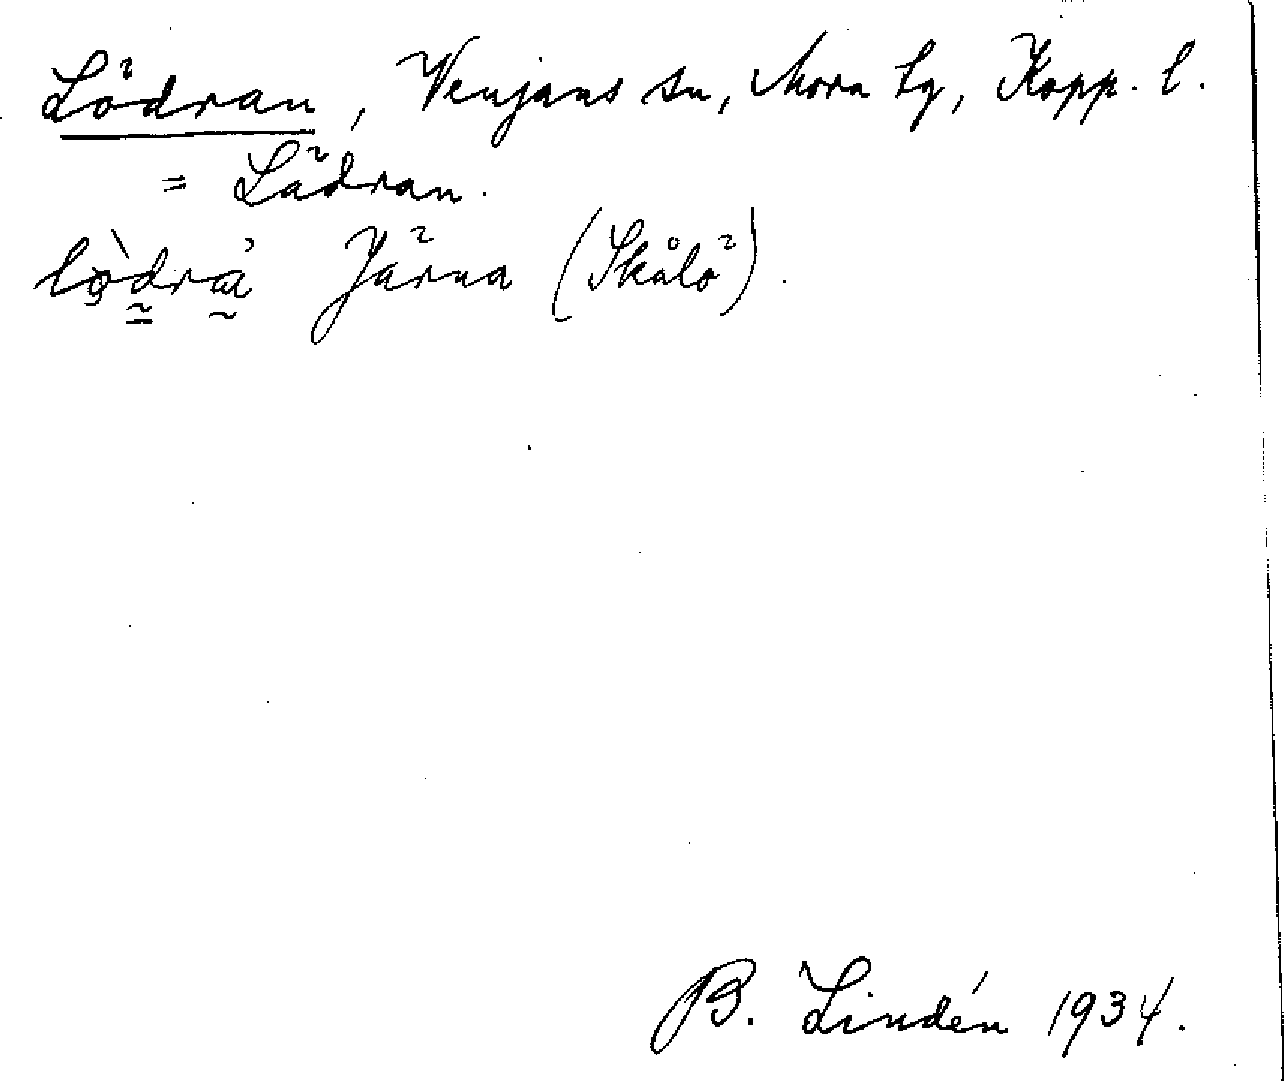 Lödran, Venjans sn, Mora tg, Kopp. l.
= Lädran.
lòdrá Järna (Skålö).
B. Lindén 1934.